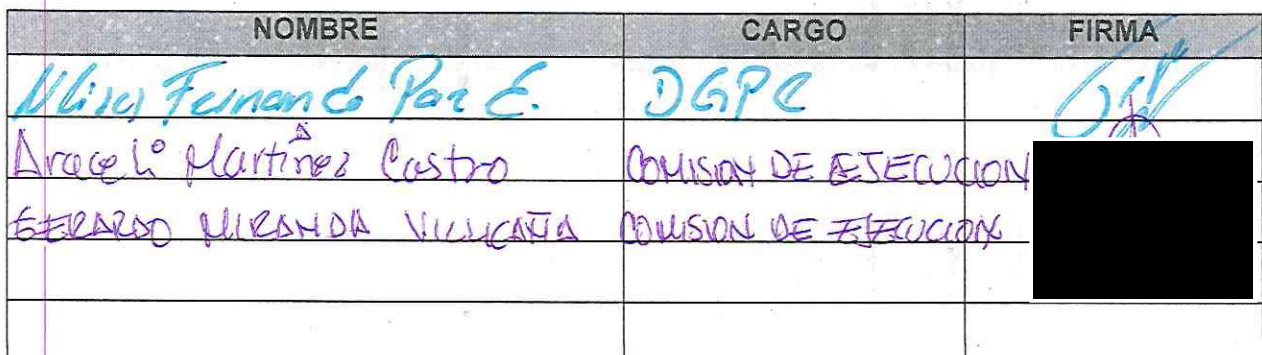 NOMBRE CARGO FIRMA
Fernando Paz E. DGPC
Araceli Martinez Castro COMISION DE EJECUCION
GERARDO MIRANDA VILLICAÑA COMISION DE EJECUCION